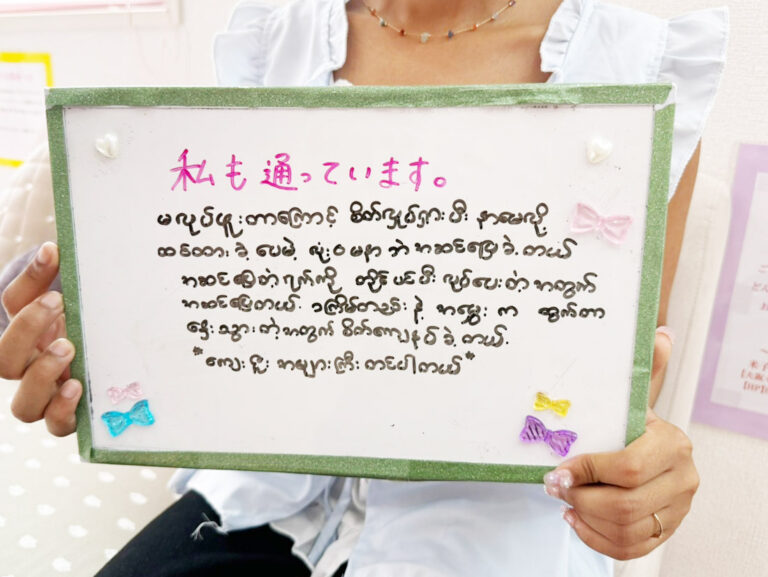 私も通っています。
မလုပ်ဖူးတာကြောင့် စိတ်လှုပ်ရှားပြီး နာမေလို့
ထင်ထားခဲ့ပေမဲ့ လုံးဝမနာဘဲ အဆင်ပြေခဲ့တယ်
အဆင်ပြေတဲ့ရက်ကို တွဲပြီး လုပ်ပေးတဲ့အတွက်
အဆင်ပြေတယ်။ ၁ကြိမ်တည်းနဲ့ အမွှေးက ထွက်တာ
နှေးသွားတဲ့အတွက် စိတ်ကျေနပ်ခဲ့တယ်.
*ကျေးဇူးအများကြီးတင်ပါတယ်*